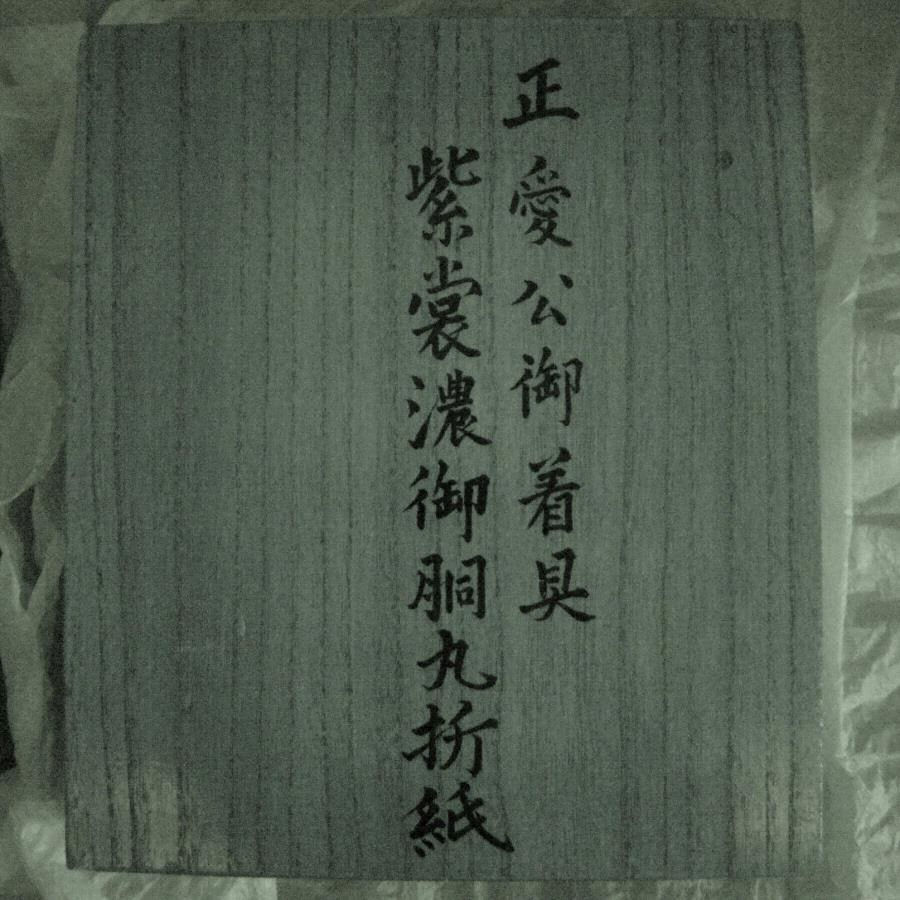 正愛公御着具
紫裳濃御胴丸折紙